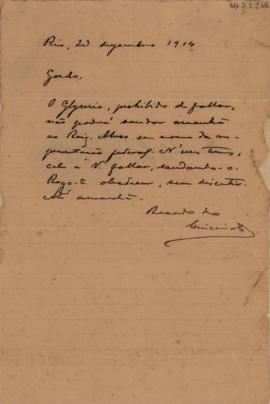 Rio, 23 dezembro 1914
Gordo,
O Glycerio, prohibido de fallar,
não poderá saudar amanhã
ao Rodg. Alves em nome da re-
presentação federal. N'esses termos,
cabe a V. fallar, saudando-o.
Rogo-te obedecer, sem discutir.
Até amanhã.
Recado do